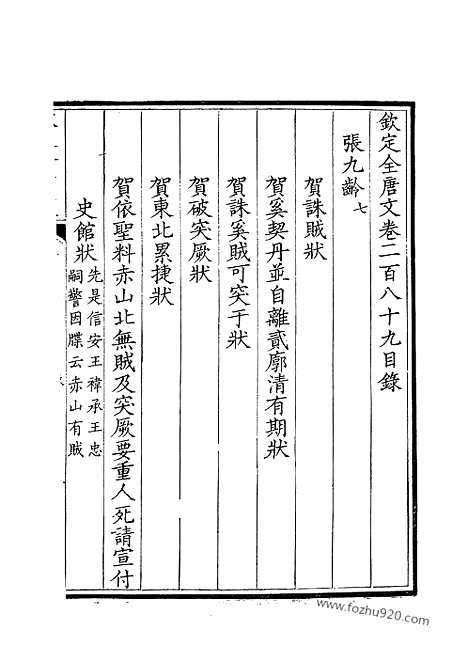 欽定全唐文卷二百八十九目錄
張九齡七
賀誅賊狀
賀奚契丹並自離貳廓清有期狀
賀誅奚賊可突于狀
賀破突厥狀
賀東北累捷狀
賀依聖料赤山北無賊及突厥要重人死請宣付
史館狀先是信安王禕承王忠
嗣警因牒云赤山有賊
www.fozhu920.com